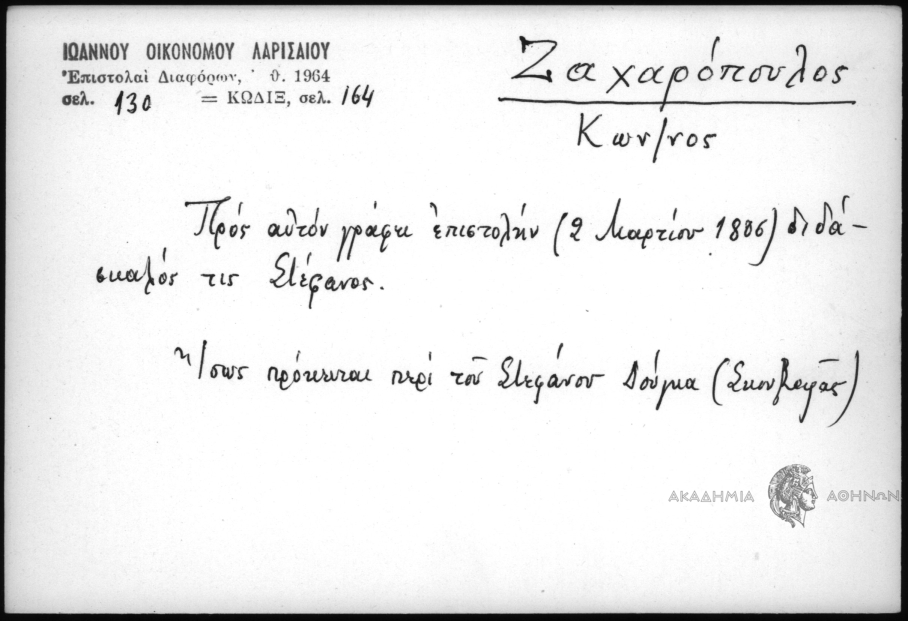 ΙΩΑΝΝΟΥ ΟΙΚΟΝΟΜΟΥ ΛΑΡΙΣΑΙΟΥ
Ἐπιστολαὶ Διαφόρων, ʹ θ. 1964
σελ. 130 = ΚΩΔΙΞ, σελ. 164
Ζαχαρόπουλος
Κων/νος
Πρός αὐτόν γράφει ἐπιστολήν (2 Μαρτίου 1806) διδά-
σκαλός τις Στέφανος.
Ἴσως πρόκειται περί τοῦ Στεφάνου Δούγκα
ΑΚΑΔΗΜΙΑ ΑΘΗΝΩΝ